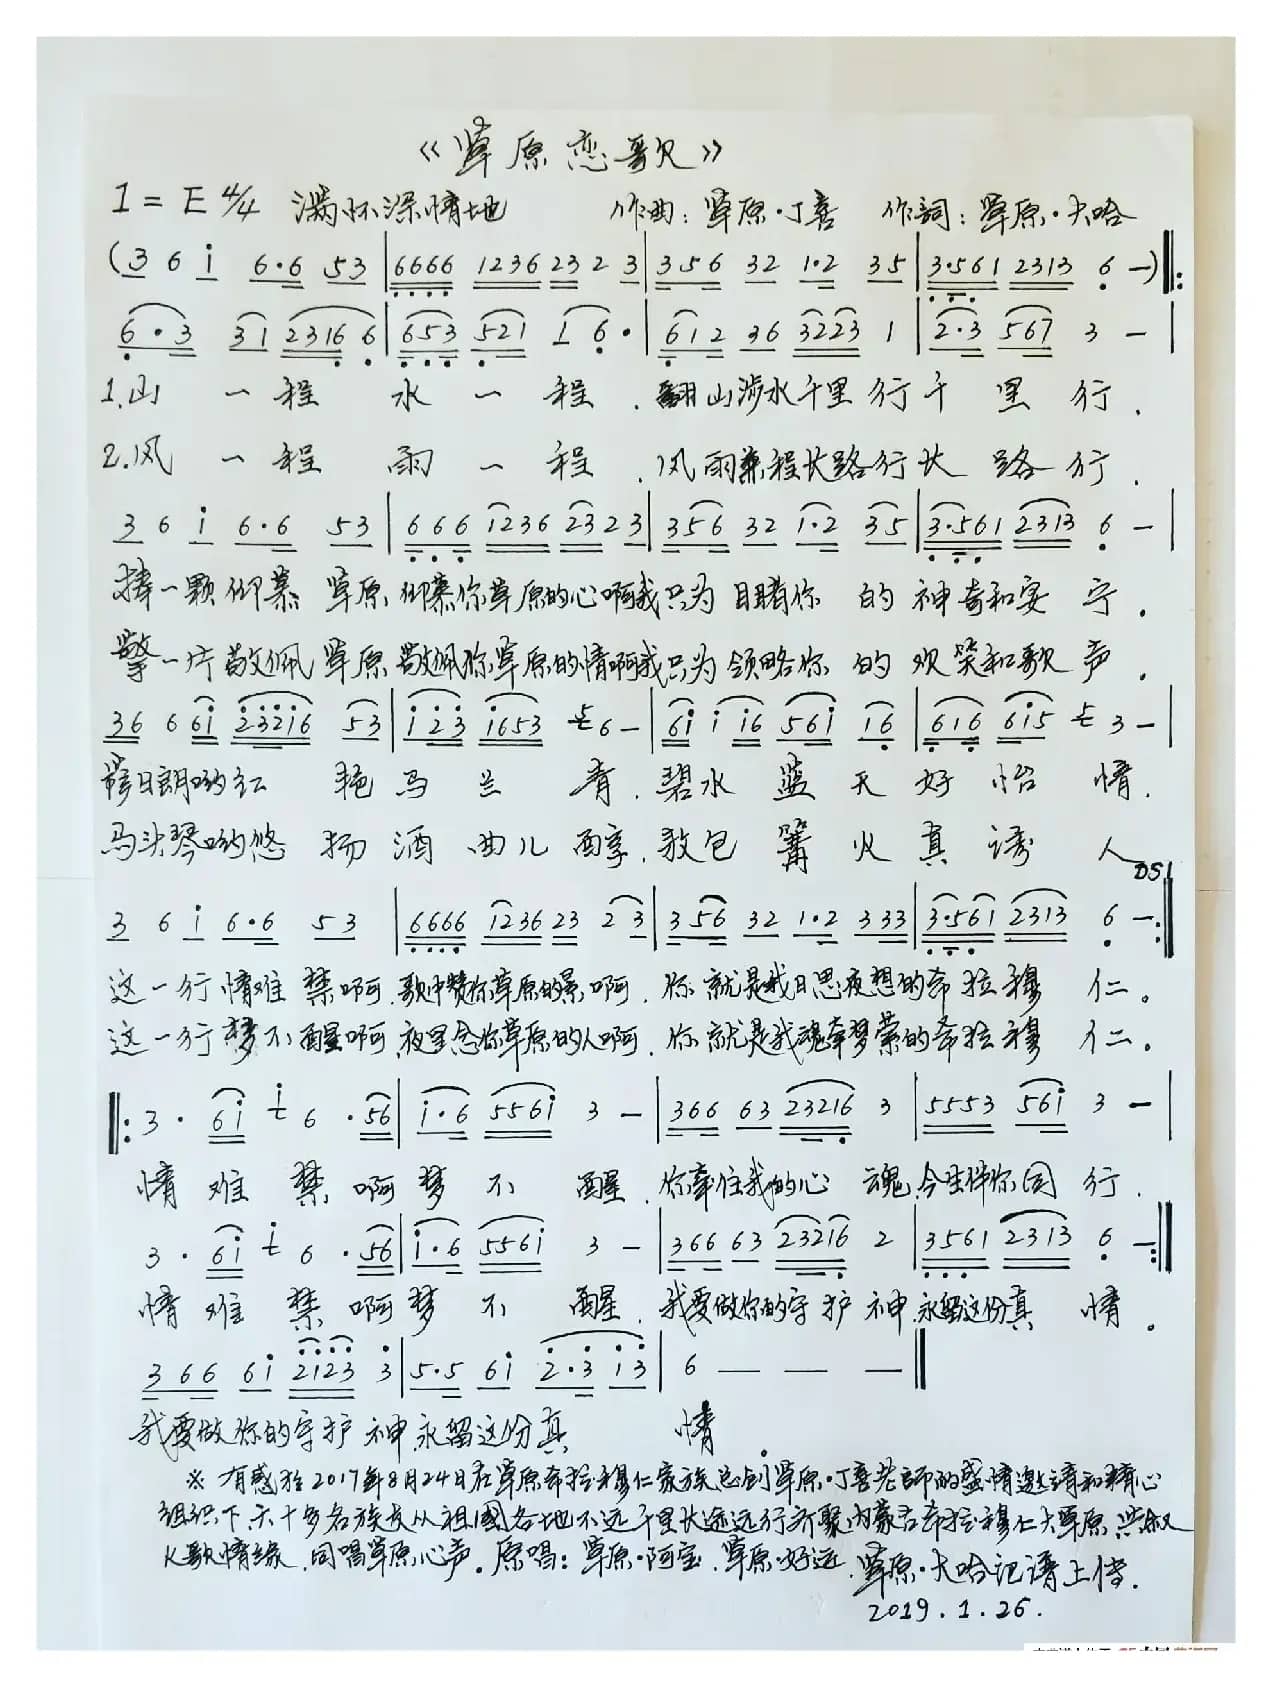 《草原恋歌》
1=E 4/4 满怀深情地 作曲:草原·丁喜 作詞:草原·大哈
(3 6 i 6·6 53 | 6666 1236 23 2 3 | 356 32 1·2 35 | 3·561 2313 6 —) ‖:
6·3 31 2316 6 | 653 521 1 6· | 612 36 3223 1 | 2·3 567 3 — |
1.山一程水一程.翻山涉水千里行千里行.
2.风一程雨一程.风雨兼程长路行长路行.
3 6 i 6·6 53 | 666 1236 2323 | 356 32 1·2 35 | 3·561 2313 6 — |
捧一颗仰慕草原仰慕你草原的心啊我只为目睹你的神奇和安宁.
擎一片敬佩草原敬佩你草原的情啊我只为领略你的欢笑和歌声.
36 6 6i 23216 53 | i23 i653 5 6 — | 6i i i6 56i i6 | 616 6i5 5 3 — |
日朗哟红艳马兰青.碧水蓝天好怡情.
马头琴哟悠扬酒曲儿醇.敖包篝火真诱人
DS1
3 6 i 6·6 53 | 6666 1236 23 23 | 356 32 1·2 333 | 3·561 2313 6 — :‖
这一行情难禁啊.歌中赞你草原的景啊.你就是我日思夜想的希拉穆仁。
这一行梦不醒啊.夜里念你草原的人啊.你就是我魂牵梦萦的希拉穆仁。
‖: 3· 6i i 6·56 | i·6 556i 3 — | 366 63 23216 3 | 5553 56i 3 — |
情难禁啊梦不醒.你牵住我的心魂.今生伴你同行.
3· 6i i 6·56 | i·6 556i 3 — | 366 63 23216 2 | 3561 2313 6 — :‖
情难禁啊梦不醒.我要做你的守护神.永留这份真情。
366 6i 2123 3 | 5·5 6i 2·3 i3 | 6 — — — ‖
我要做你的守护神.永留这份真情.
※有感於2017年8月24日在草原希拉穆仁家族总创草原·丁喜老師的盛情邀请和精心
组织下六十多名族友从祖國各地不远千里长途远行齐聚内蒙古希拉穆仁大草原.共叙
K歌情缘.同唱草原心声。原唱:草原·阿宝.草原·好远.草原·大哈记谱上传.
2019.1.26.